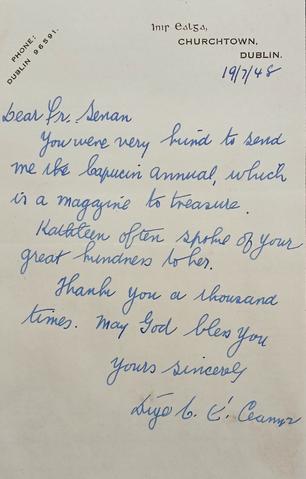 PHONE:
DUBLIN 96591.
Inir Ealga,
CHURCHTOWN,
DUBLIN.
19/7/48
Dear Fr. Senan
You were very kind to send
me the Capucin Annual, which
is a magazine to treasure.
Kathleen often spoke of your
great kindness to her.
Thank you a thousand
times. May God bless you
Yours sincerely